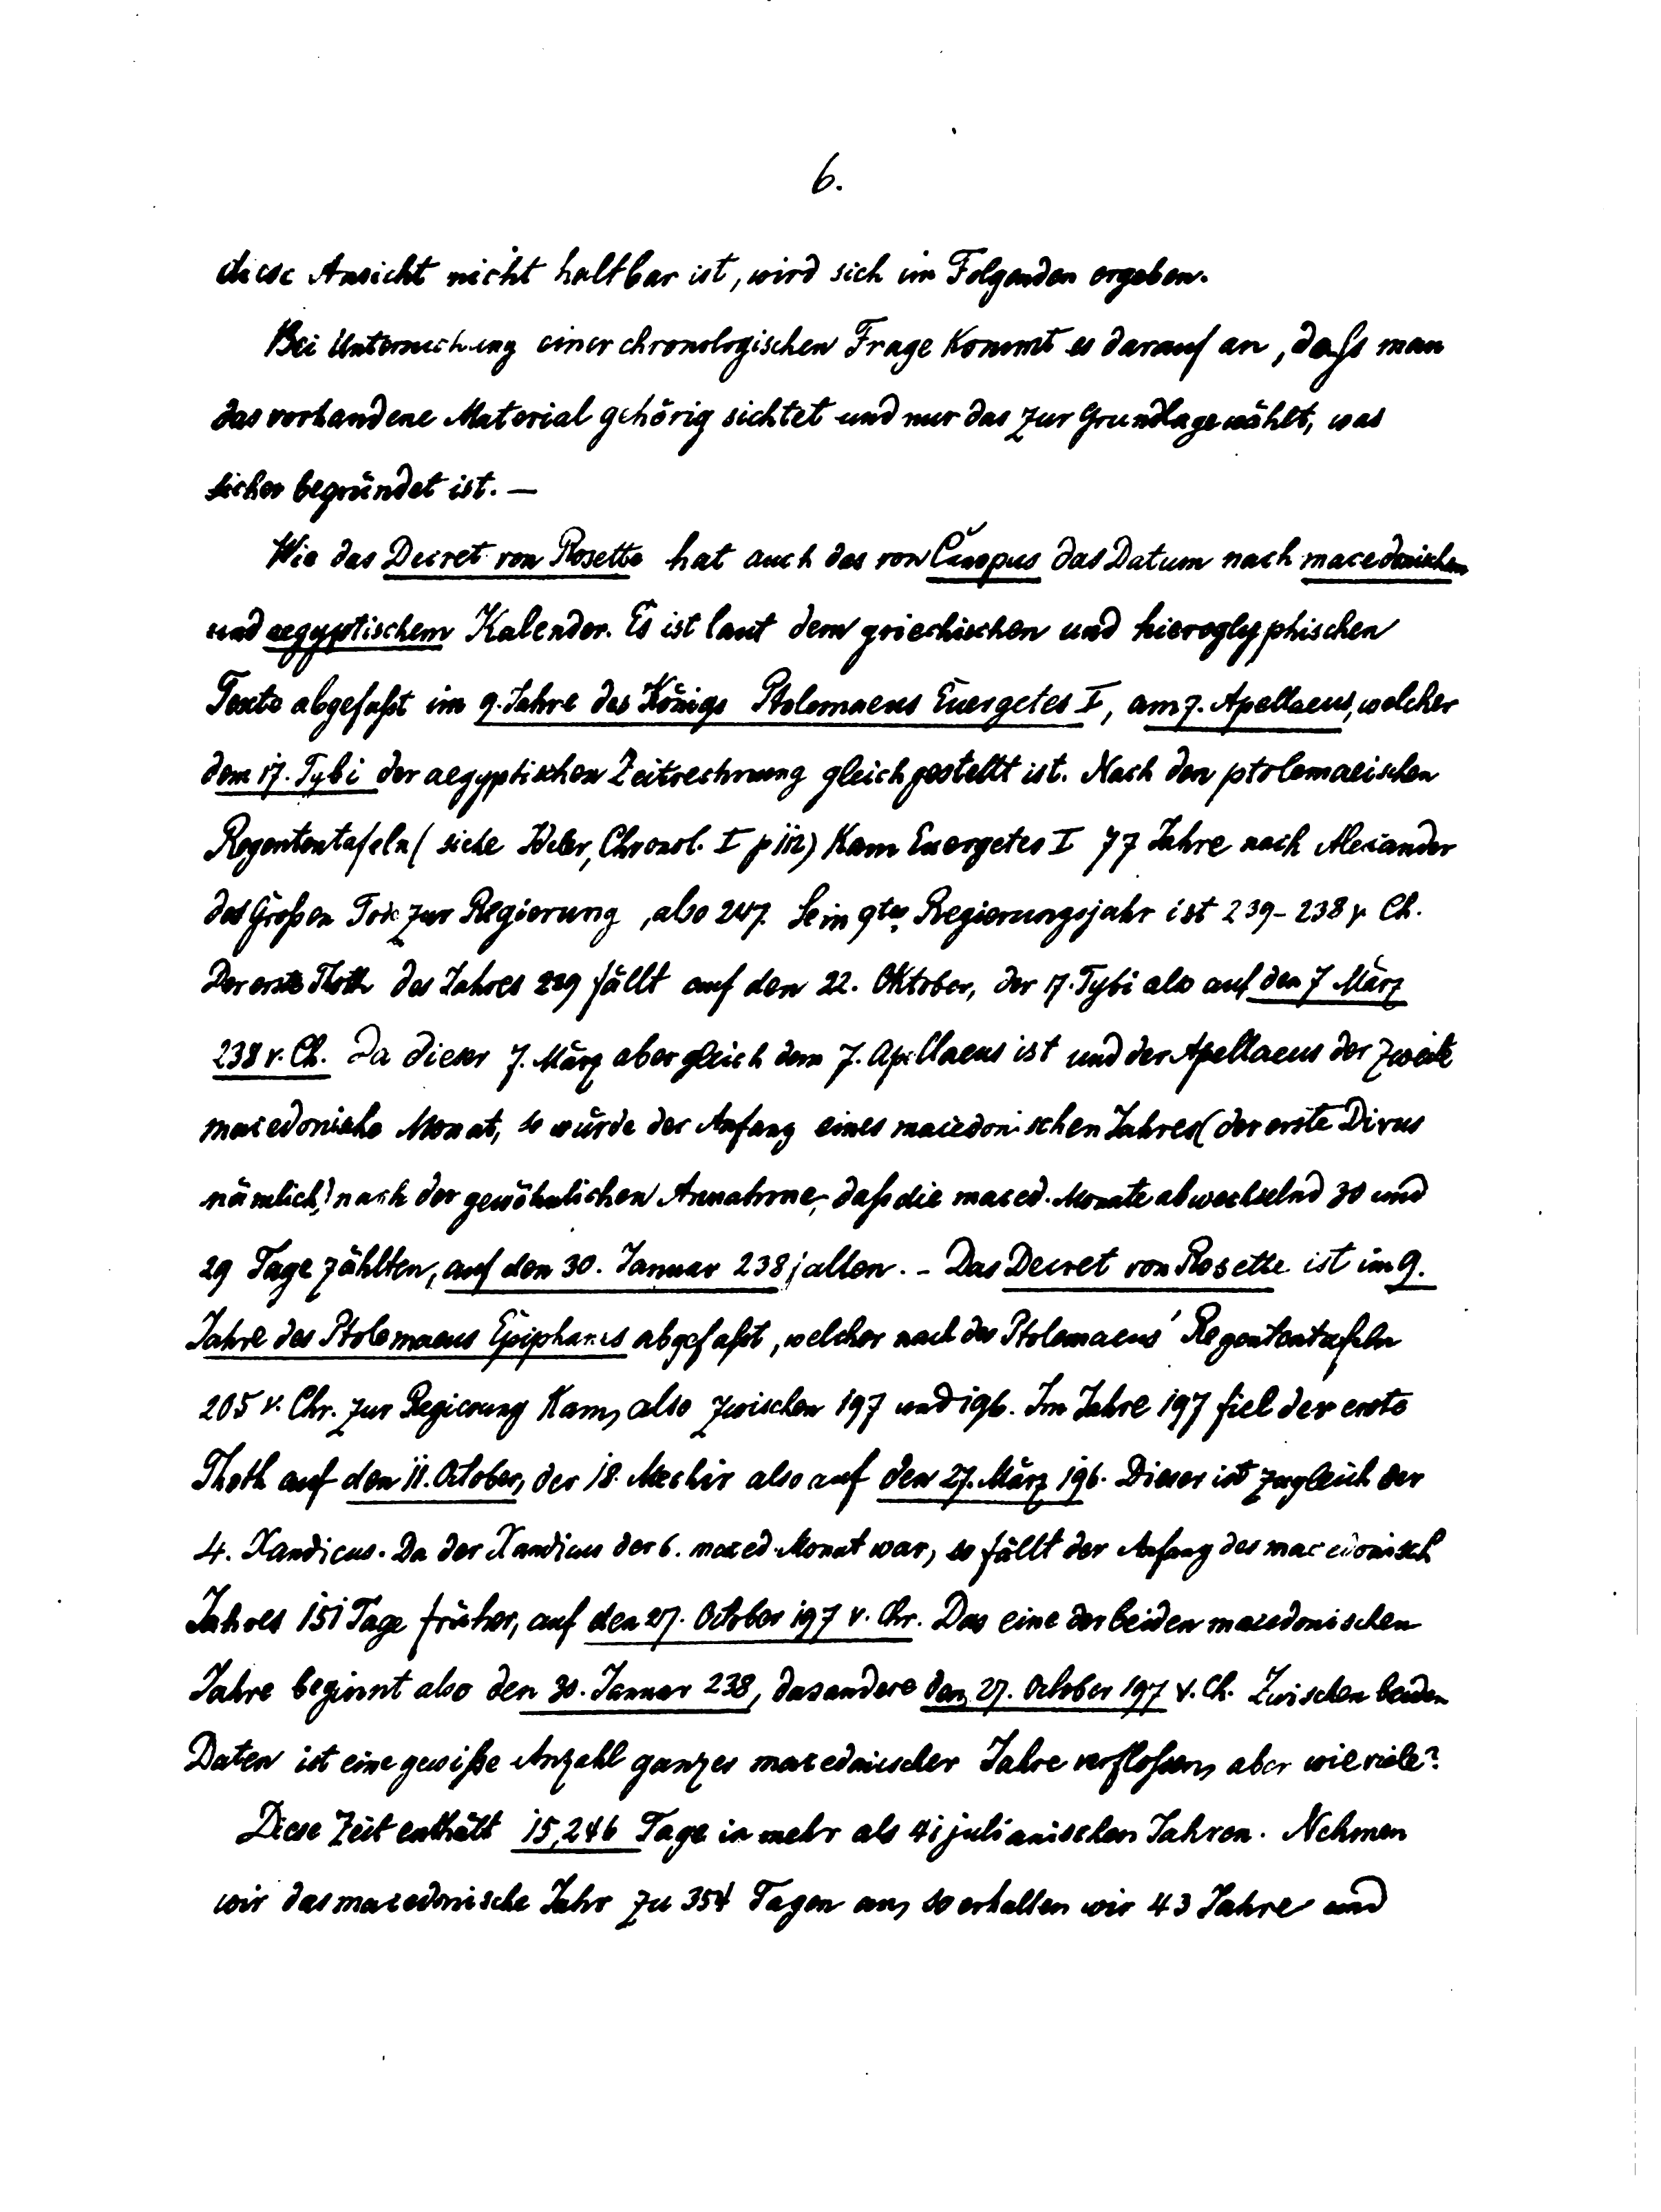 6.
diese Ansicht nicht haltbar ist, wird sich im Folgenden ergeben.
Bei Untersuchung einer chronologischen Frage kommt es darauf an, daſs man
das vorhandene Material gehörig sichtet und nur das zur Grundlage wählt, was
sicher begründet ist. —
Wie das Decret von Rosette hat auch das von Canopus das Datum nach macedonischem
und aegyptischem Kalender. Es ist laut dem griechischen und hieroglyphischen
Texte abgefaſst im 9. Jahre des Königs Ptolemaeus Euergetes I, am 7. Apellaeus, welcher
dem 17. Tybi der aegyptischen Zeitrechnung gleichgestellt ist. Nach den ptolemaeischen
Regententafeln (siehe Ideler, Chronol. I p 112) kam Euergetes I 77 Jahre nach Alexander
des Großen Tode zur Regierung, also 247. Sein 9tes Regierungsjahr ist 239-238 v. Ch.
Der erste Thoth des Jahres 239 fällt auf den 22. Oktober, der 17. Tybi also auf den 7 März
238 v. Ch. Da dieser 7. März aber gleich dem 7. Apellaeus ist und der Apellaeus der zweite
macedonische Monat, so würde der Anfang eines macedonischen Jahres (der erste Dius
nämlich,) nach der gewöhnlichen Annahme, daſs die maced. Monate abwechselnd 30 und
29 Tage zählten, auf den 30. Januar 238 fallen. - Das Decret von Rosette ist im 9.
Jahre des Ptolemaeus Epiphanes abgefaſst, welcher nach des Ptolemaeus' Regententafeln
205 v. Chr. zur Regierung kam, also zwischen 197 und 196. Im Jahre 197 fiel der erste
Thoth auf den 11. October, der 18. Mechir also auf den 27. März 196. Dieser ist zugleich der
4. Xandicus. Da der Xandicus der 6. maced. Monat war, so fällt der Anfang des macedonisch
Jahres 151 Tage früher, auf den 27. October 197 v. Chr. Das eine der beiden macedonischen
Jahre beginnt also den 30. Januar 238, das andere den 27. October 197 v. Ch. Zwischen beiden
Daten ist eine gewiſse Anzahl ganzer macedonischer Jahre verfloſsen, aber wie viele?
Diese Zeit enthält 15,246 Tage in mehr als 41 julianischen Jahren. Nehmen
wir das macedonische Jahr zu 354 Tagen an, so erhalten wir 43 Jahre und